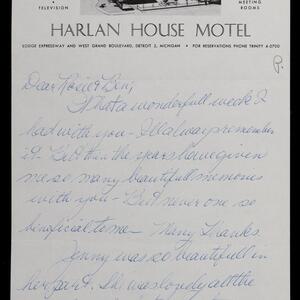 • TELEVISION
• MEETING
ROOMS
HARLAN HOUSE MOTEL
LODGE EXPRESSWAY AND WEST GRAND BOULEVARD, DETROIT 2, MICHIGAN • FOR RESERVATIONS PHONE TRINITY 4-0700
P.
Dear Rose & Ben,
What a wonderfull week I
had with you - I'll always remember
it - But then the years have given
me so many beautifull memories
with you - But never one so
beneficial to me - Many Thanks.
Jenny was so beautifull in
her part. She was lovely all the